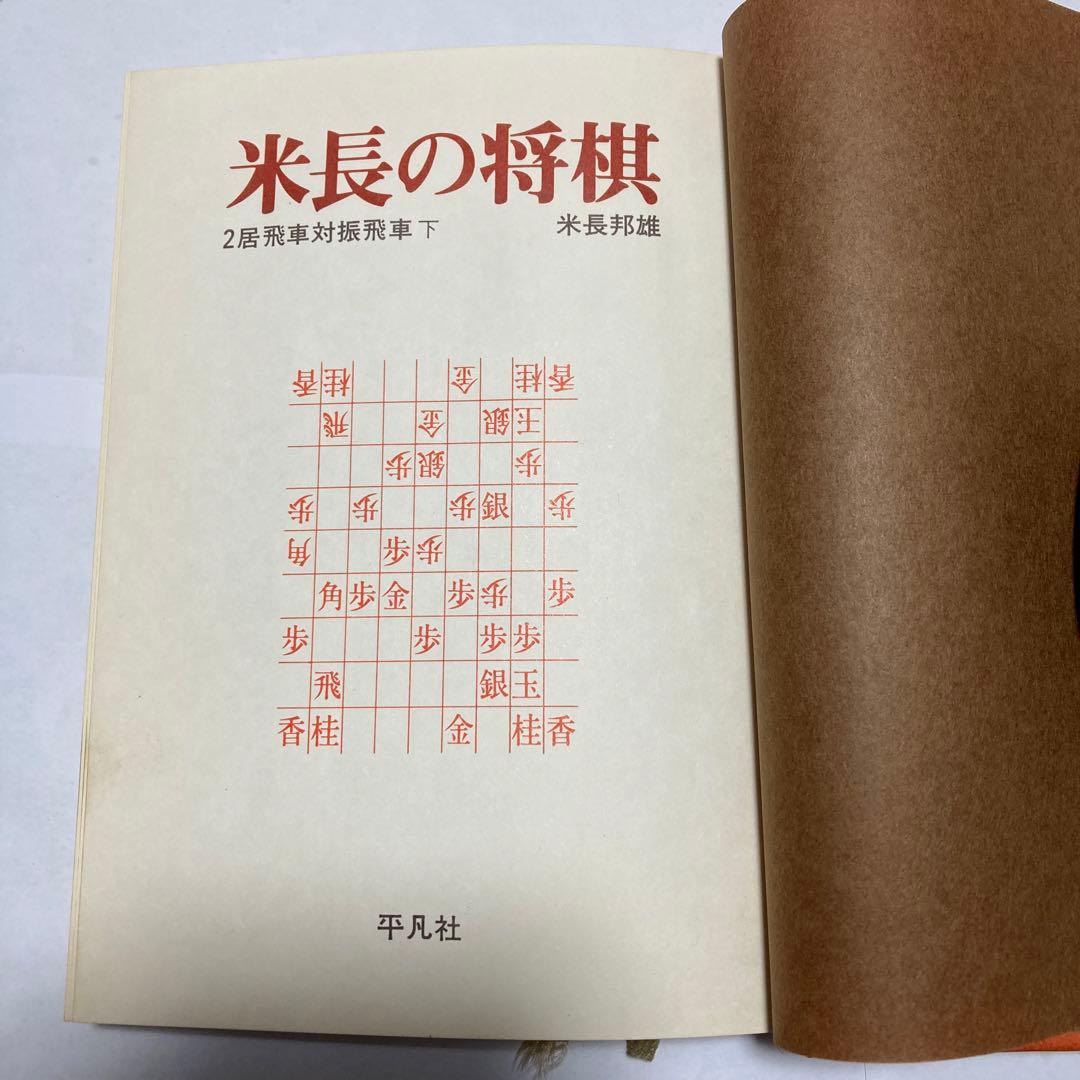 米長の将棋
2居飛車対振飛車 下 米長邦雄
香桂金桂香
飛金銀王
歩銀歩
歩歩歩銀歩
角歩歩
角歩金歩歩歩
歩歩歩歩
飛銀玉
香桂金桂香
平凡社